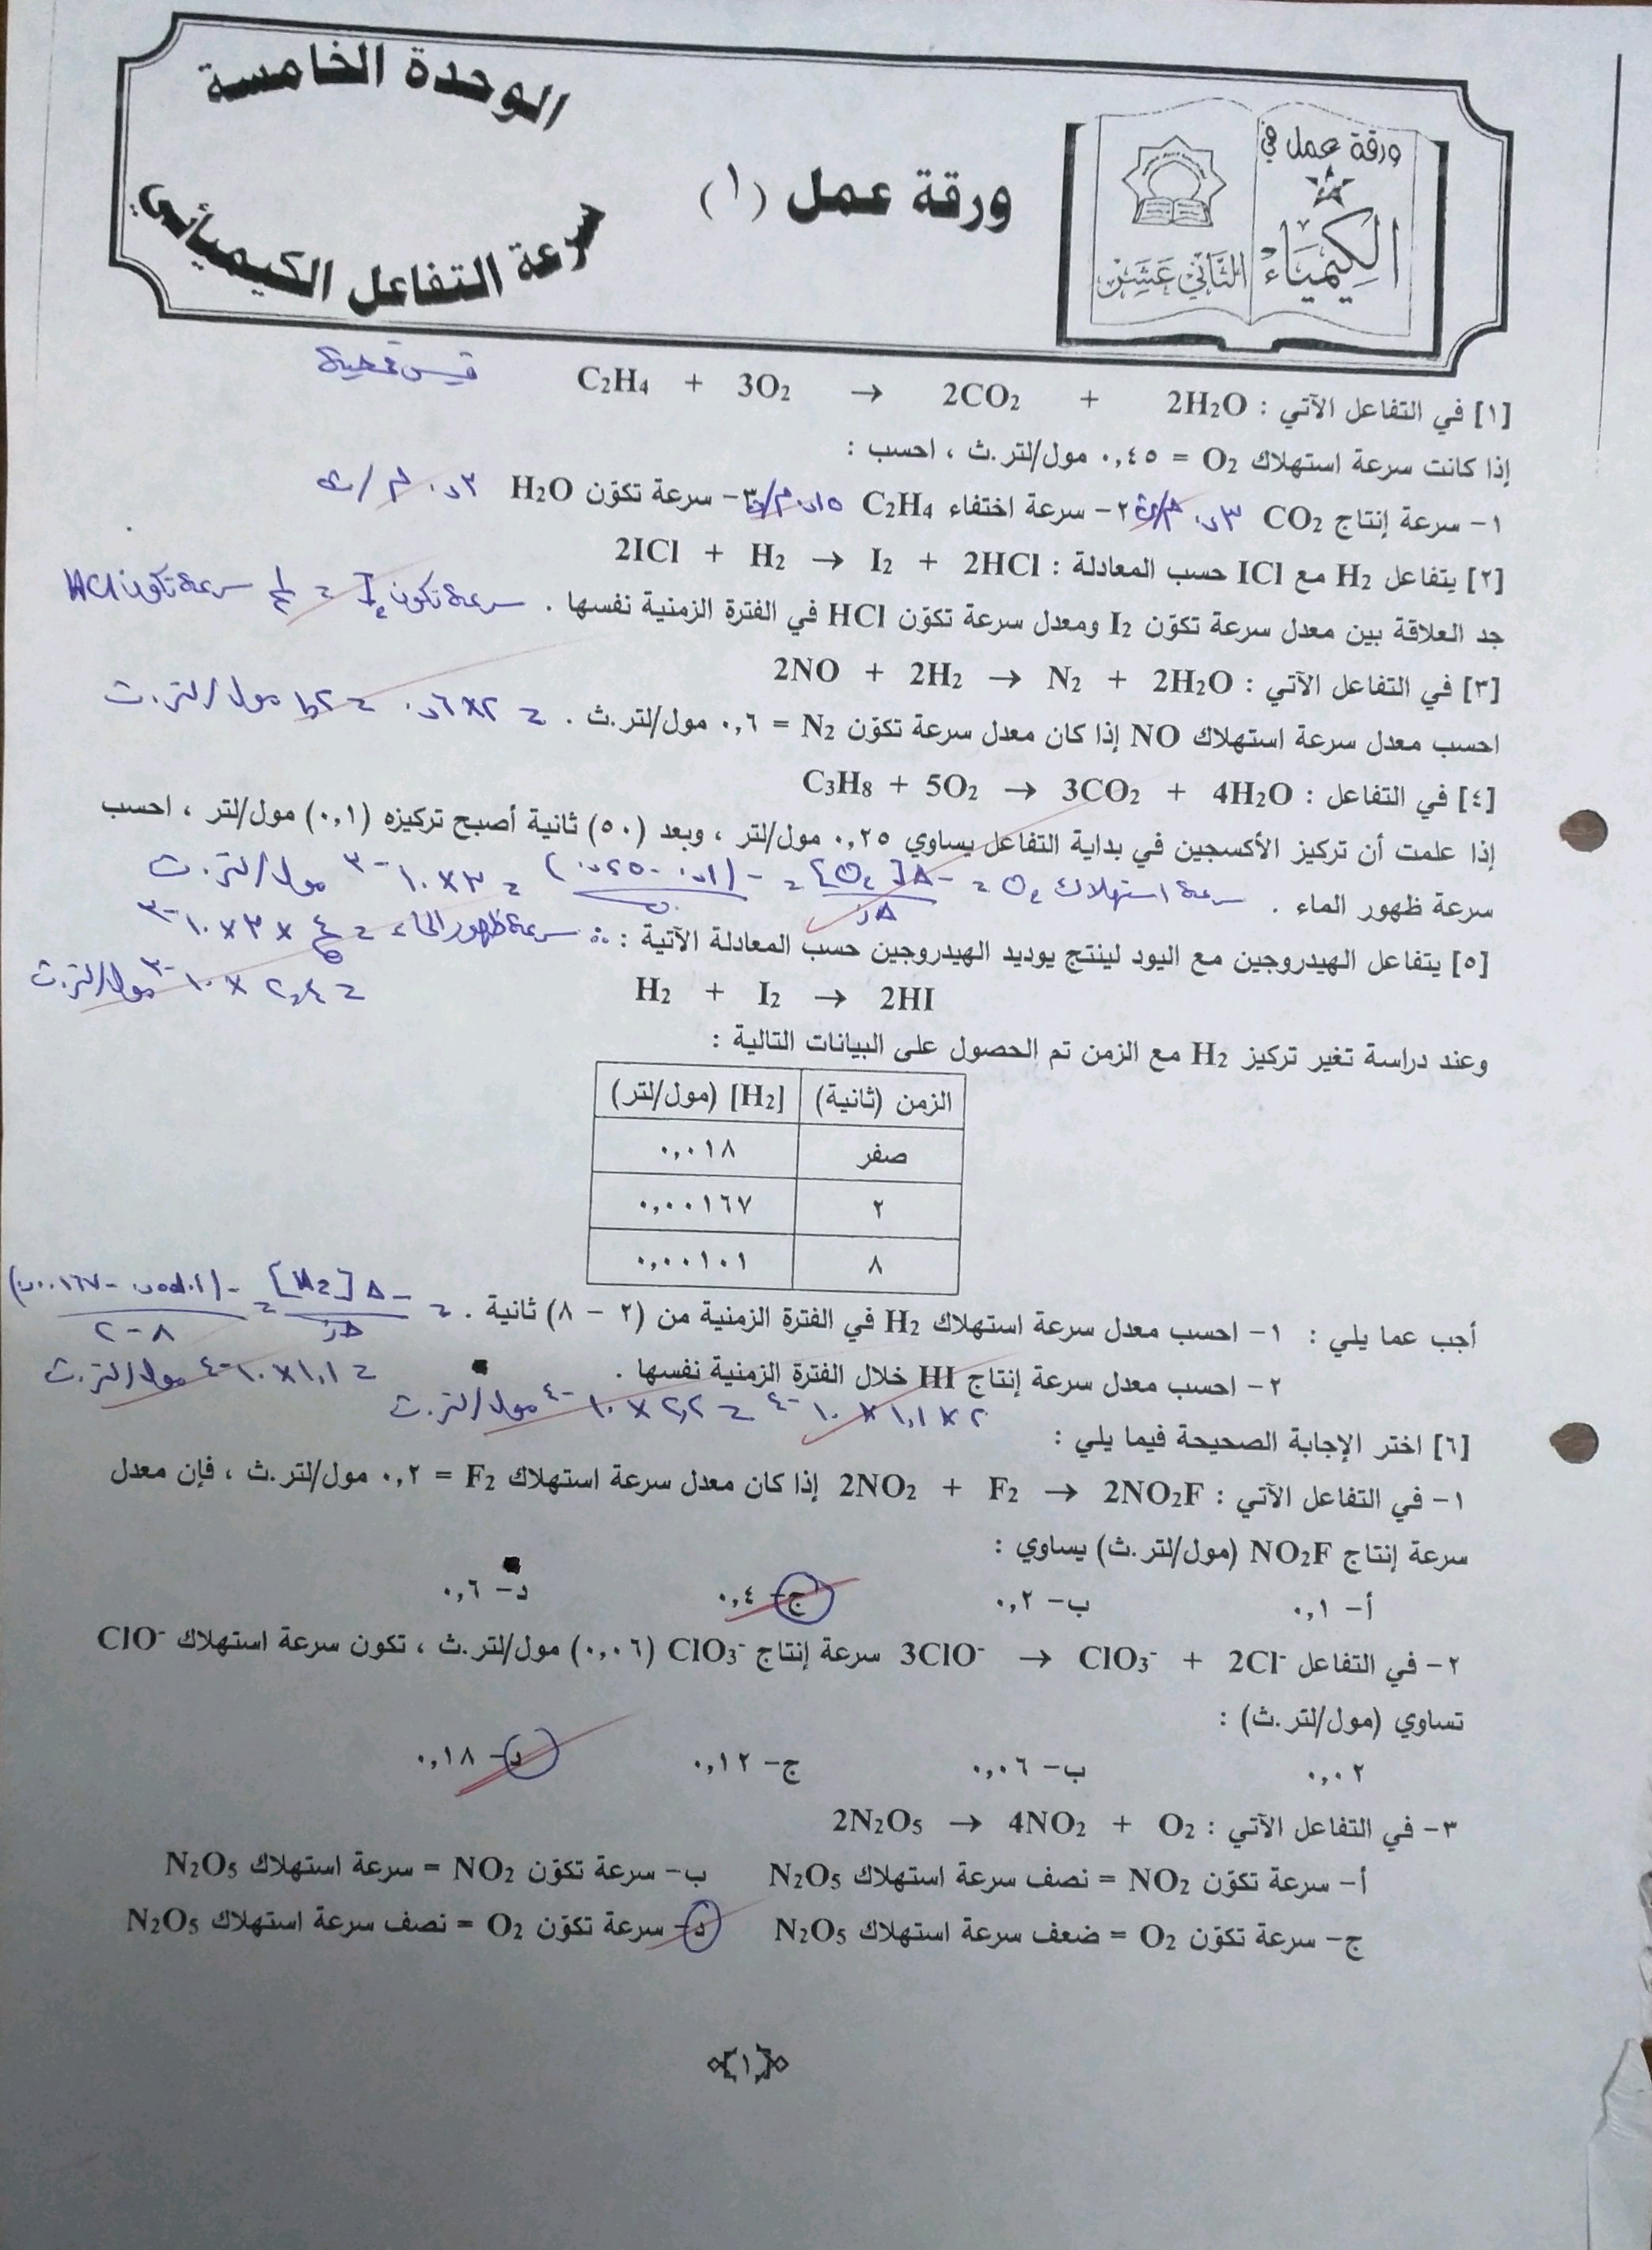 الوحدة الخامسة
سرعة التفاعل الكيميائي
ورقة عمل (١)
ورقة عمل في
الكيمياء
الثاني عشر
[١] في التفاعل الآتي : C₂H₄ + 3O₂ → 2CO₂ + 2H₂O
إذا كانت سرعة استهلاك O₂ = ٠,٤٥ مول/لتر.ث ، احسب :
١- سرعة إنتاج CO₂ ٠,٣ م/ث ٢- سرعة اختفاء C₂H₄ ٠,١٥ م/ث ٣- سرعة تكوّن H₂O ٠,٣ م/ث
[٢] يتفاعل H₂ مع ICl حسب المعادلة : 2ICl + H₂ → I₂ + 2HCl
جد العلاقة بين معدل سرعة تكوّن I₂ ومعدل سرعة تكوّن HCl في الفترة الزمنية نفسها . سرعة تكون I₂ = ½ سرعة تكون HCl
[٣] في التفاعل الآتي : 2NO + 2H₂ → N₂ + 2H₂O
احسب معدل سرعة استهلاك NO إذا كان معدل سرعة تكوّن N₂ = ٠,٦ مول/لتر.ث . = ٢×٠,٦ = ١,٢ مول/لتر.ث
[٤] في التفاعل : C₃H₈ + 5O₂ → 3CO₂ + 4H₂O
إذا علمت أن تركيز الأكسجين في بداية التفاعل يساوي ٠,٢٥ مول/لتر ، وبعد (٥٠) ثانية أصبح تركيزه (٠,١) مول/لتر ، احسب
سرعة ظهور الماء . سرعة استهلاك O₂ = -Δ[O₂]/Δز = -(٠,١ - ٠,٢٥)/٥٠ = ٣×١٠⁻٣ مول/لتر.ث
∴ سرعة ظهور الماء = ٤/٥ × ٣×١٠⁻٣
= ٢,٤ × ١٠⁻٣ مول/لتر.ث
[٥] يتفاعل الهيدروجين مع اليود لينتج يوديد الهيدروجين حسب المعادلة الآتية :
H₂ + I₂ → 2HI
وعند دراسة تغير تركيز H₂ مع الزمن تم الحصول على البيانات التالية :
الزمن (ثانية) [H₂] (مول/لتر)
صفر ٠,٠١٨
٢ ٠,٠٠١٦٧
٨ ٠,٠٠١٠١
أجب عما يلي : ١- احسب معدل سرعة استهلاك H₂ في الفترة الزمنية من (٢ - ٨) ثانية . = -Δ[H₂]/Δز =
= ١,١×١٠⁻٤ مول/لتر.ث
٢- احسب معدل سرعة إنتاج HI خلال الفترة الزمنية نفسها .
٢×١,١×١٠⁻٤ = ٢,٢×١٠⁻٤ مول/لتر.ث
[٦] اختر الإجابة الصحيحة فيما يلي :
١- في التفاعل الآتي : 2NO₂ + F₂ → 2NO₂F إذا كان معدل سرعة استهلاك F₂ = ٠,٢ مول/لتر.ث ، فإن معدل
سرعة إنتاج NO₂F (مول/لتر.ث) يساوي :
أ- ٠,١ ب- ٠,٢ ج- ٠,٤ د- ٠,٦
٢- في التفاعل 3ClO⁻ → ClO₃⁻ + 2Cl⁻ سرعة إنتاج ClO₃⁻ (٠,٠٦) مول/لتر.ث ، تكون سرعة استهلاك ClO⁻
تساوي (مول/لتر.ث) :
٠,٠٢ ب- ٠,٠٦ ج- ٠,١٢ د- ٠,١٨
٣- في التفاعل الآتي : 2N₂O₅ → 4NO₂ + O₂
أ- سرعة تكوّن NO₂ = نصف سرعة استهلاك N₂O₅ ب- سرعة تكوّن NO₂ = سرعة استهلاك N₂O₅
ج- سرعة تكوّن O₂ = ضعف سرعة استهلاك N₂O₅ د- سرعة تكوّن O₂ = نصف سرعة استهلاك N₂O₅
١